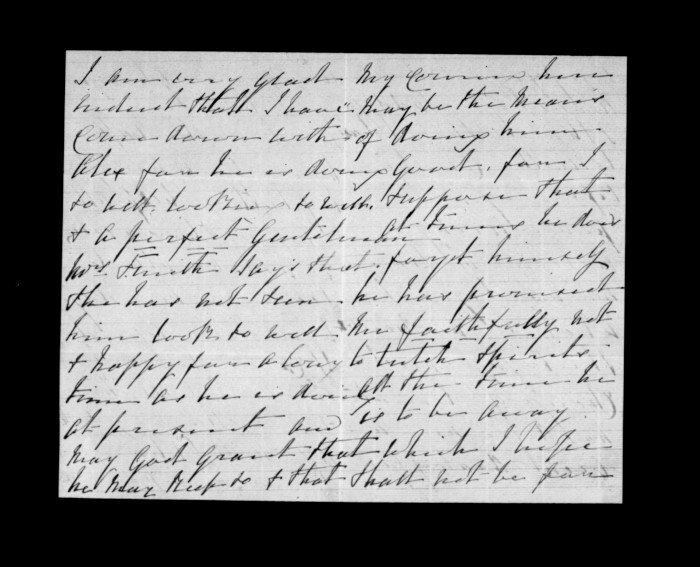 I am very glad
indeed that I have
Come down with
Alex for he is doing
so well. looking so well.
& a perfect Gentleman
Mrs. says that
she has not seen
him look so well
& happy for a long
time as he is doing
at present and
May God grant that
he May keep so & that
My coming here
May be the Means
of doing him
Good, for I
suppose that
at times he does
forget himself
he has promised
Me faithfully not
to tutch Spirits
all the time he
is to be away
which I hope
shall not be for